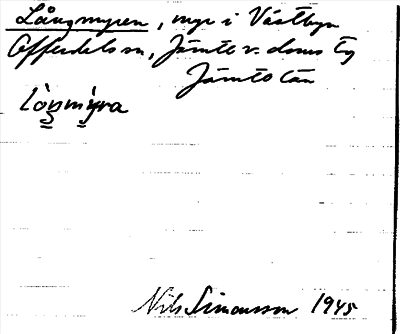 Långmyren, myr i Västbyn
Offerdals sn, Jämtl. v. doms tg
Jämtotan
Nils Simonsson 1945